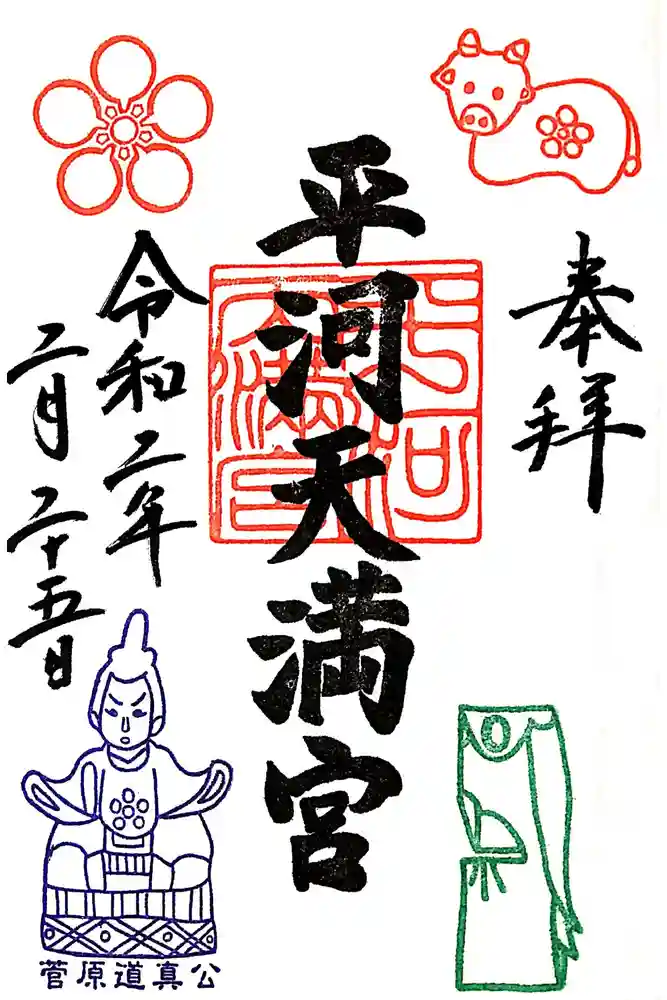 奉拝
平河天満宮
平河
天満宮
令和二年
二月二十五日
菅原道真公